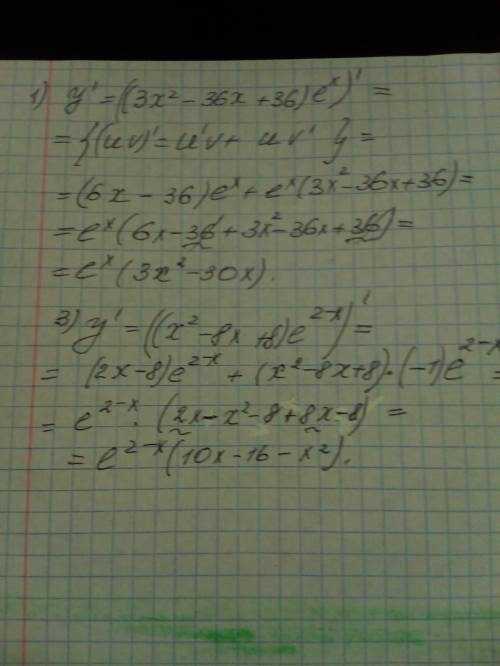 1) y' = ((3x² - 36x + 36)eˣ)' =
= {(uv)' = u'v + uv'} =
= (6x - 36)eˣ + eˣ(3x² - 36x + 36) =
= eˣ(6x - 36 + 3x² - 36x + 36) =
= eˣ(3x² - 30x).
3) y' = ((x² - 8x + 8)e²⁻ˣ)' =
= (2x - 8)e²⁻ˣ + (x² - 8x + 8)·(-1)e²⁻ˣ =
= e²⁻ˣ·(2x - x² - 8 + 8x - 8) =
= e²⁻ˣ(10x - 16 - x²).